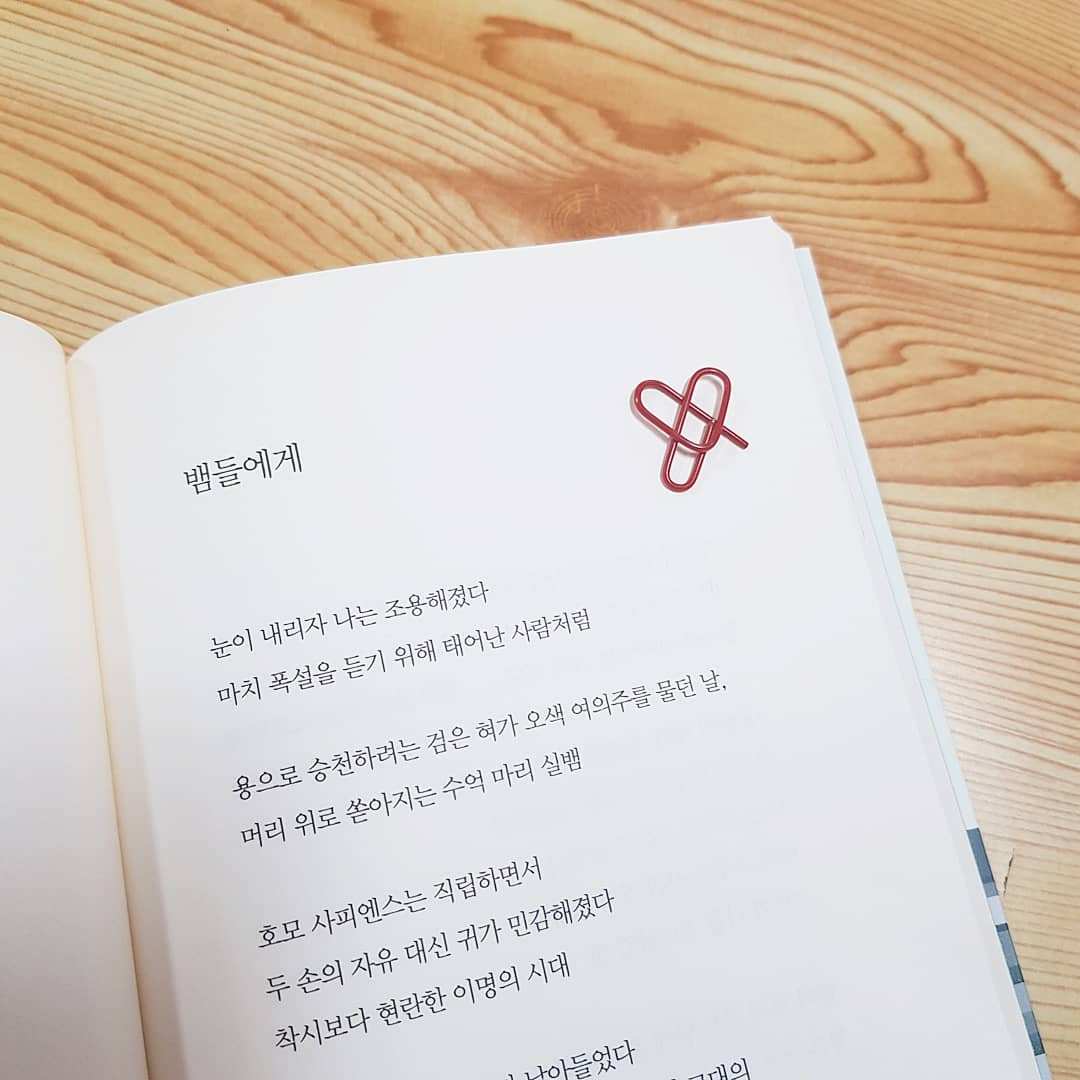 뱀들에게
눈이 내리자 나는 조용해졌다
마치 폭설을 듣기 위해 태어난 사람처럼
용으로 승천하려는 검은 혀가 오색 여의주를 물던 날,
머리 위로 쏟아지는 수억 마리 실뱀
호모 사피엔스는 직립하면서
두 손의 자유 대신 귀가 민감해졌다
착시보다 현란한 이명의 시대
날아들었다